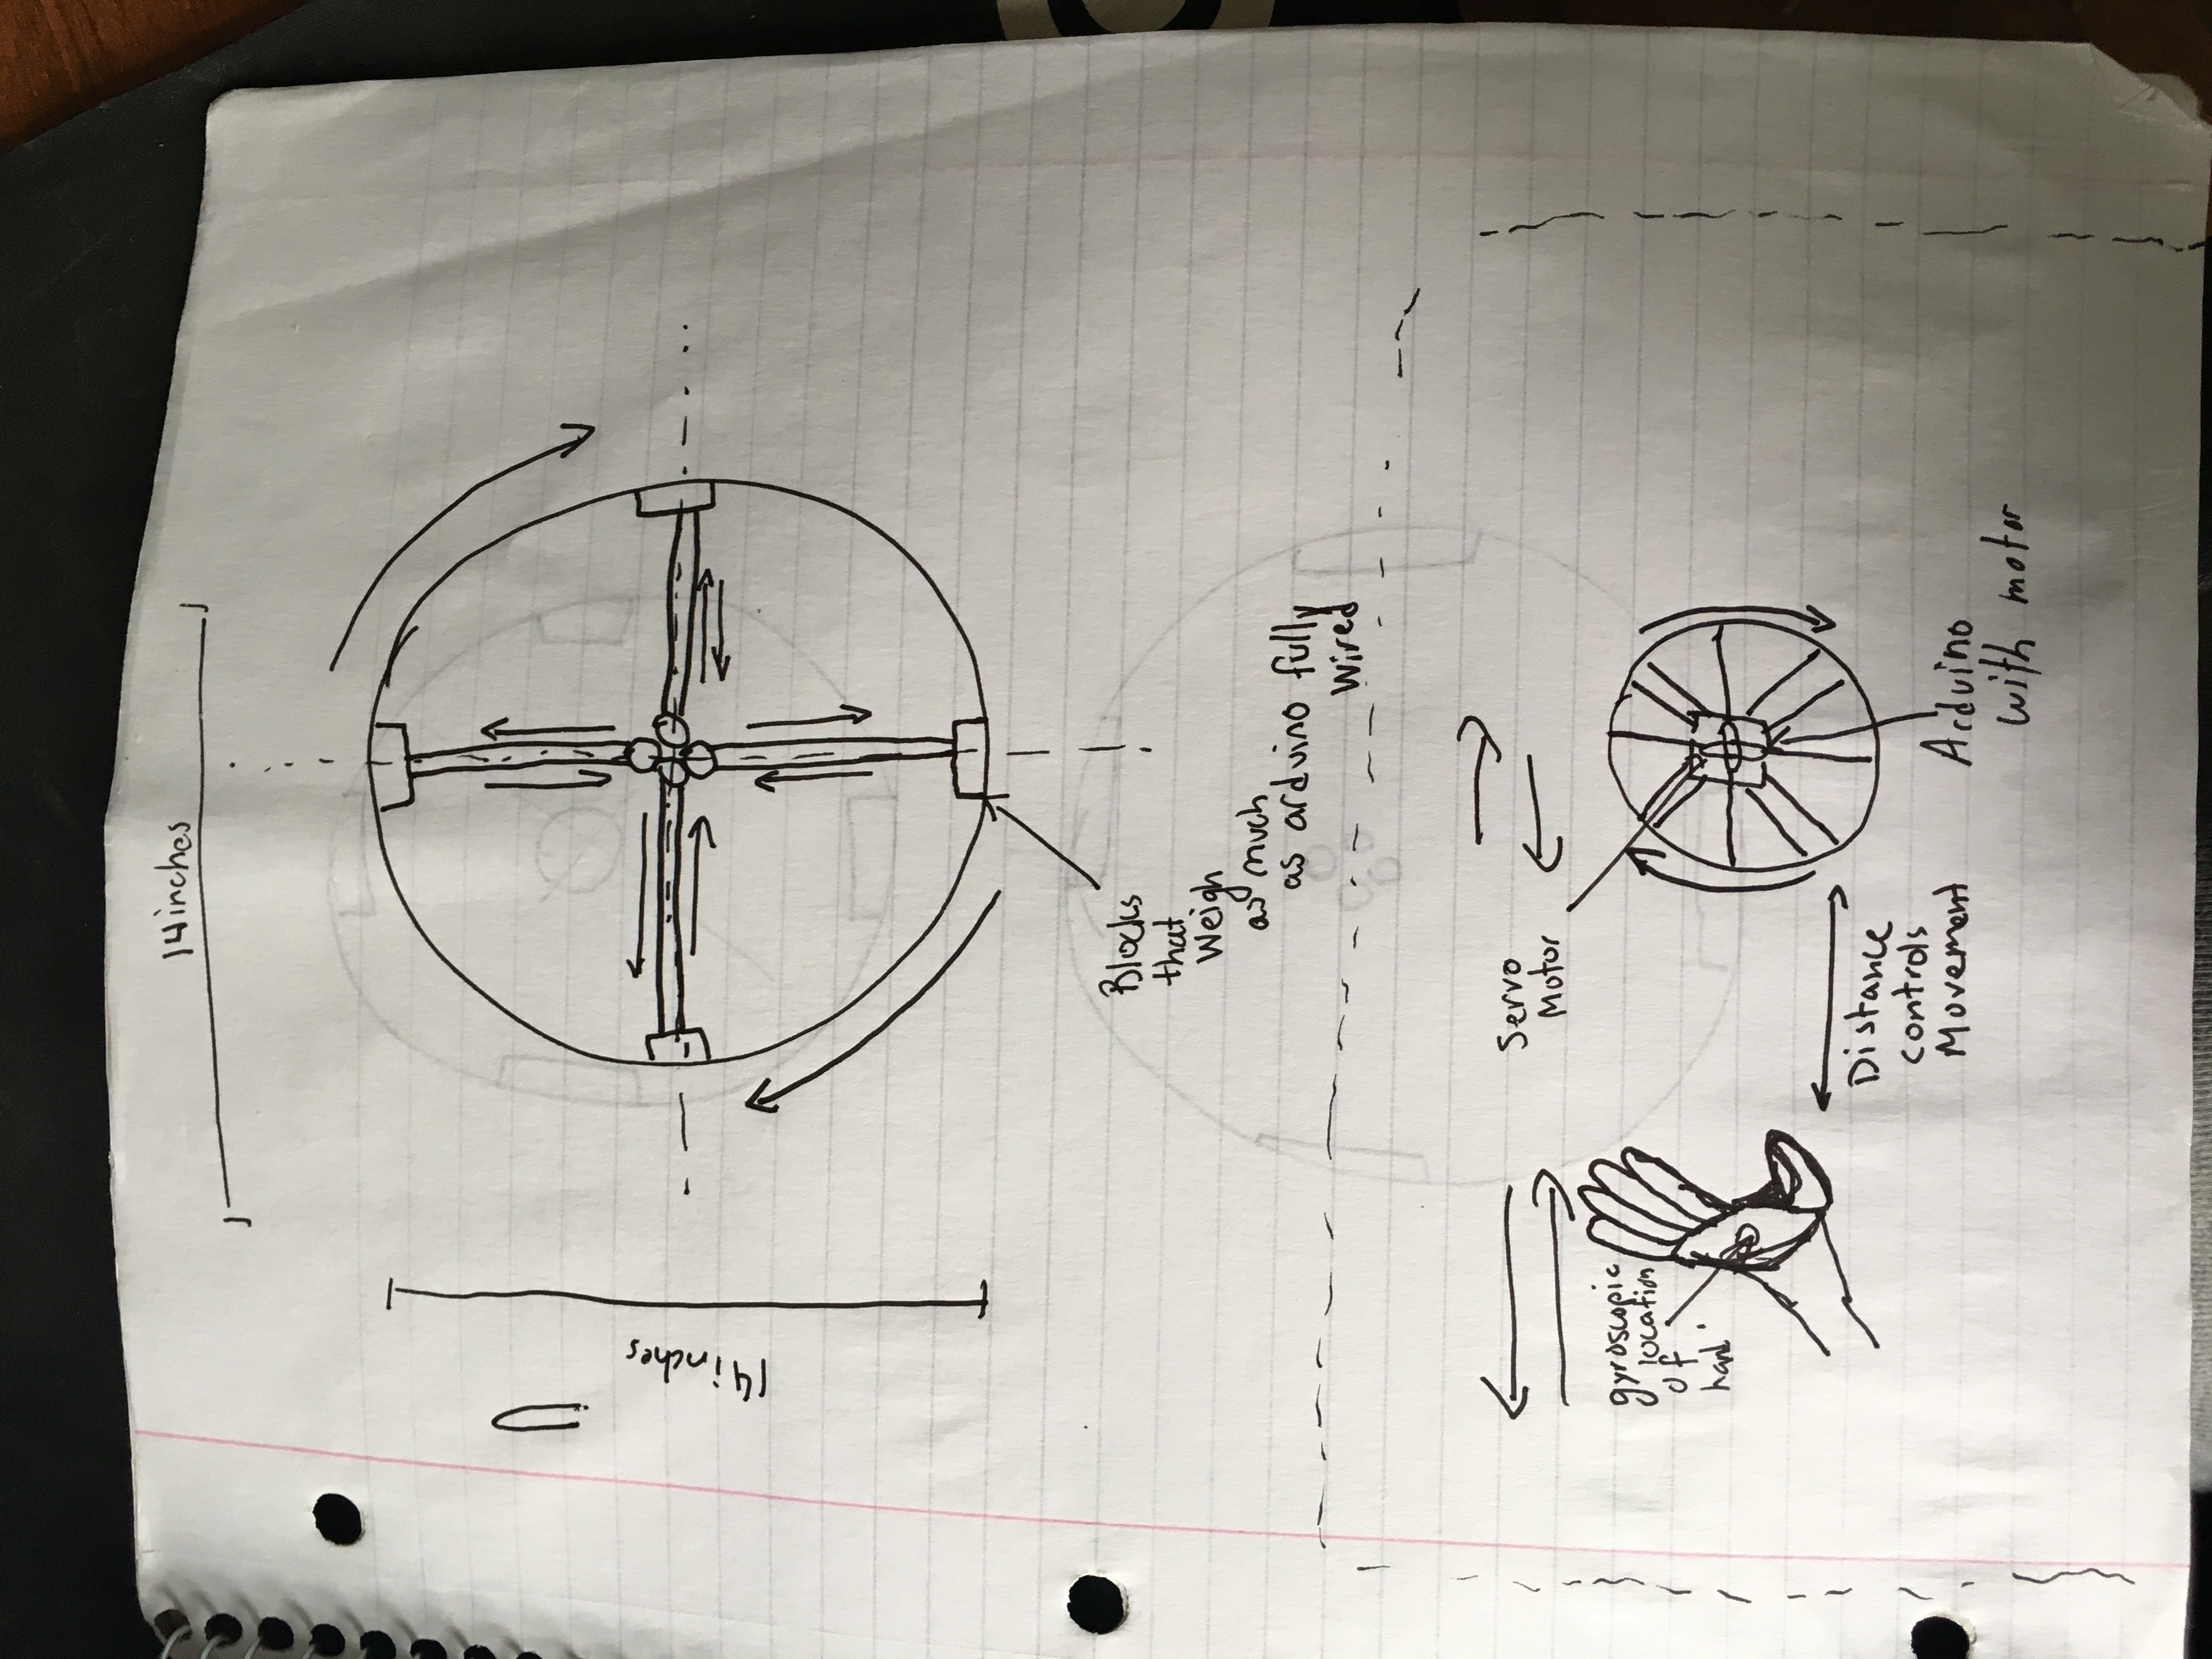 14 inches
14 inches
Blocks
that
Weigh
as much
as arduino fully
wired
Servo
Motor
gyroscopic
location
of
hand
Distance
controls
Movement
Arduino
with motor